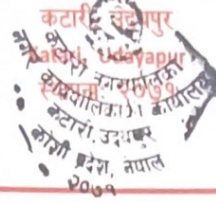 कटारी, उदयपुर
Katari, Udayapur
स्थापना २०७१
कटारी नगरपालिका
नगर कार्यपालिकाको कार्यालय
कटारी, उदयपुर
कोशी प्रदेश, नेपाल
२०७१